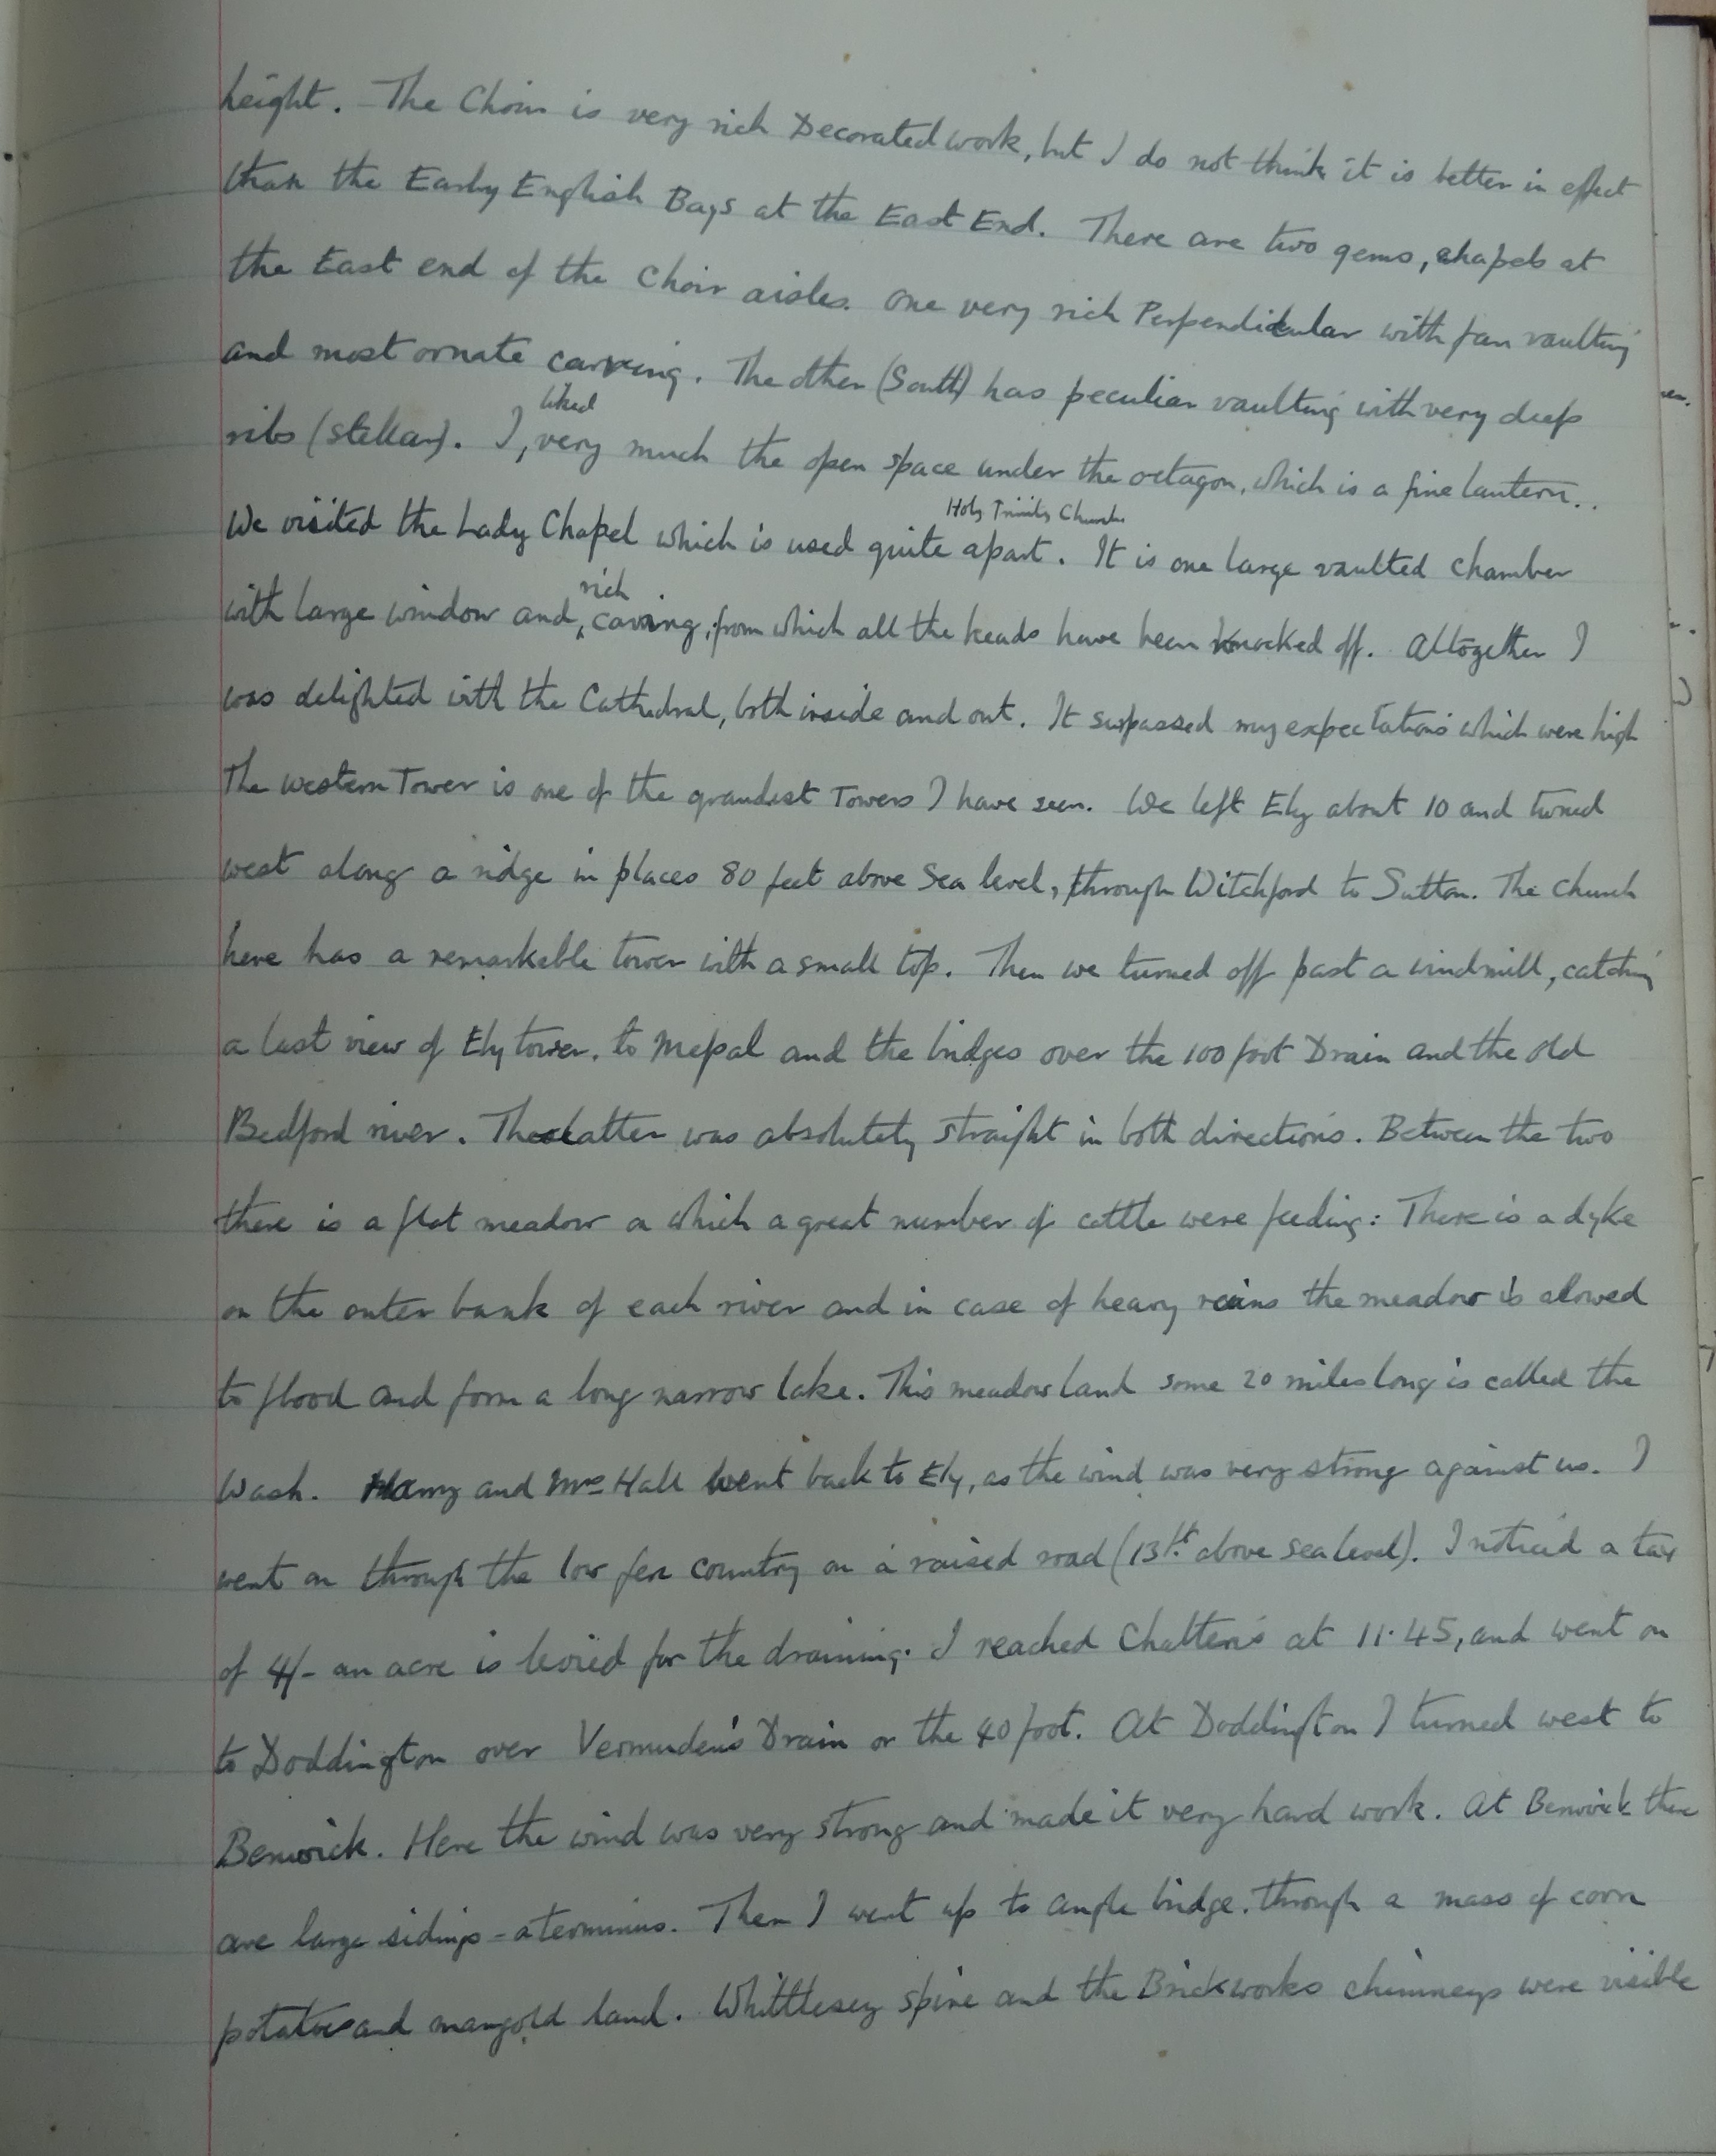 height. The Choir is very rich Decorated work, but I do not think it is better in effect
than the Early English Bays at the East End. There are two gems, chapels at
the East end of the Choir aisles. One very rich Perpendicular with fan vaulting
and most ornate carving. The other (South) has peculiar vaulting with very deep
liked
ribs (stellar). I, very much the open space under the octagon, which is a fine lantern..
Holy Trinity Church
We visited the Lady Chapel which is used quite apart. It is one large vaulted chamber
rich
with large window and, carving, from which all the heads have been knocked off. Altogether I
was delighted with the Cathedral, both inside and out. It surpassed my expectations which were high
The Western Tower is one of the grandest Towers I have seen. We left Ely about 10 and turned
west along a ridge in places 80 feet above Sea level, through Witchford to Sutton. The church
here has a remarkable tower with a small top. Then we turned off past a windmill, catching
a last view of Ely tower, to Mepal and the bridges over the 100 foot Drain and the old
Bedford river. The latter was absolutely straight in both directions. Between the two
there is a flat meadow on which a great number of cattle were feeding: There is a dyke
on the outer bank of each river and in case of heavy rains the meadow is alowed
to flood and form a long narrow lake. This meadow land some 20 miles long is called the
Wash. Harry and Mrs Hall went back to Ely, as the wind was very strong against us. I
went on through the low fen country on a raised road (13ft above sea level). I noticed a tax
of 4/- an acre is levied for the draining. I reached Chatteris at 11.45, and went on
to Doddington over Vermuden's Drain or the 40 foot. At Doddington I turned west to
Benwick. Here the wind was very strong and made it very hard work. At Benwick there
are large sidings - a terminus. Then I went up to Angle bridge. through a mass of corn
potatoes and mangold land. Whittlesey spire and the Brickworks chimneys were visible